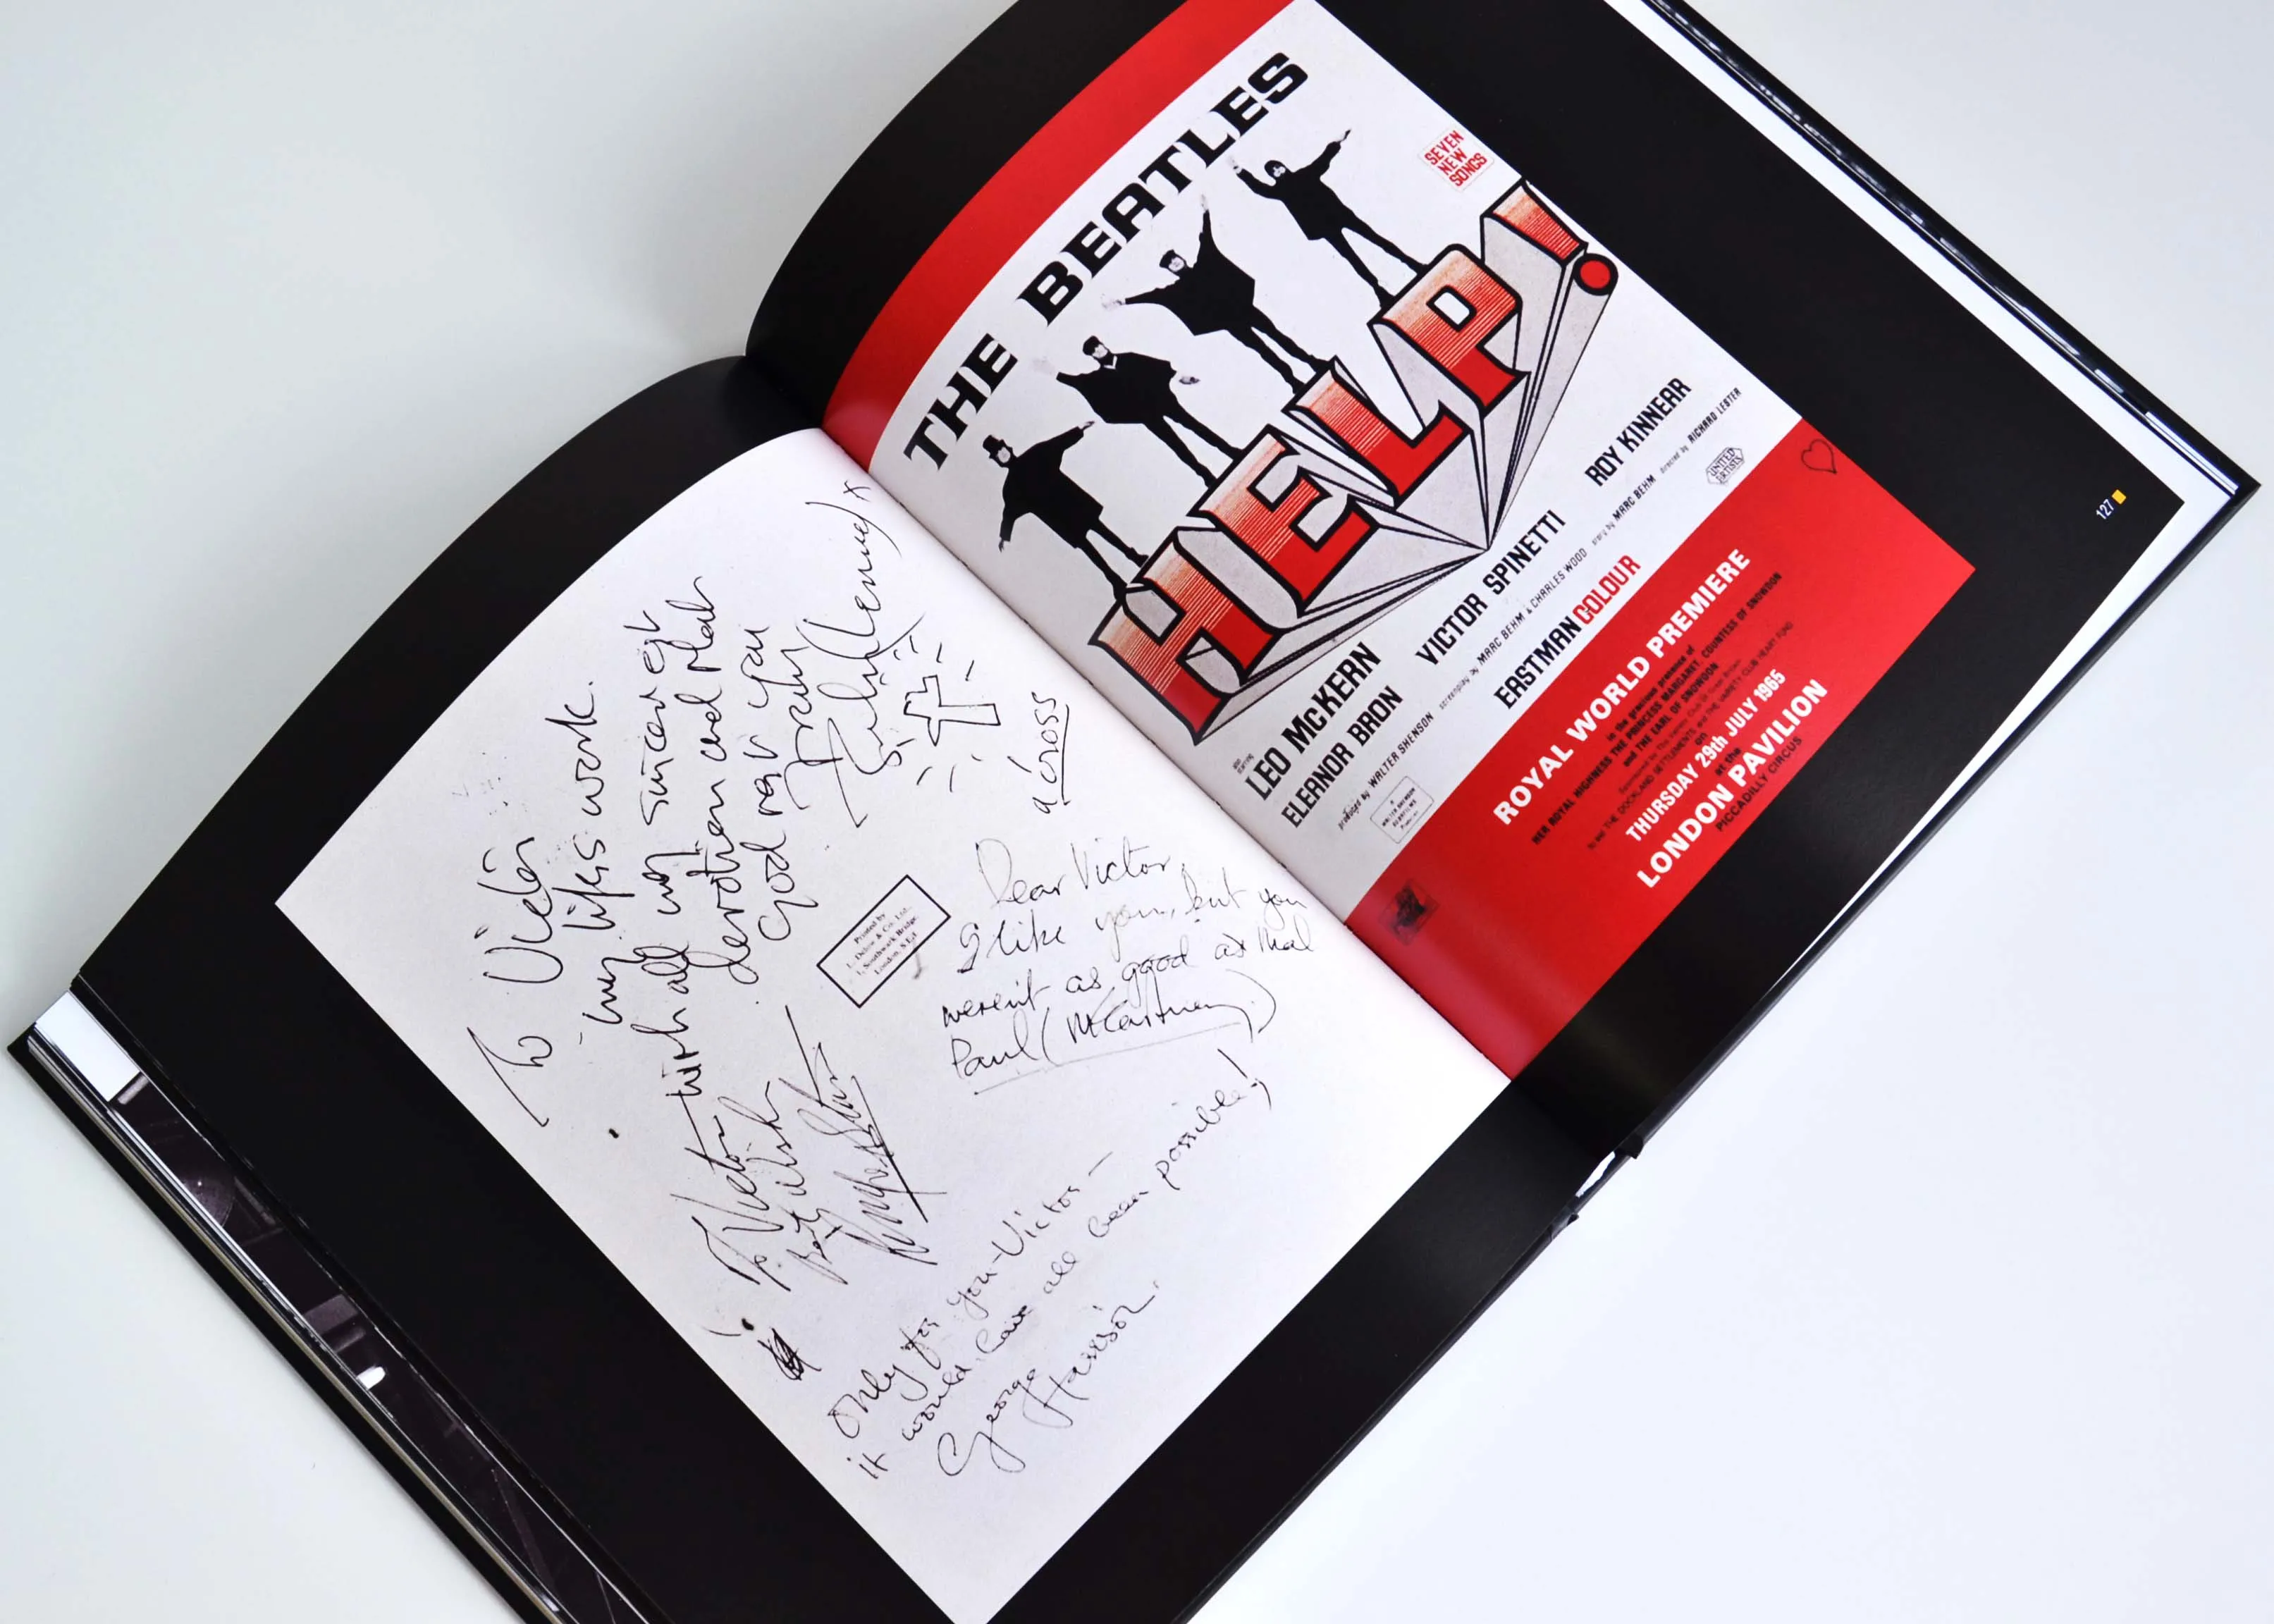 To Victor
my lifes work.
with all my sincerest
devotion and
God rest you
John (Lennon) x
a cross
Printed by
London, S.E.1
Dear Victor,
I like you, but you
weren't as good as Mal
Paul (McCartney)
To Victor
best wish
Ringo Starr
Only for you-Victor -
it would have all been possible!
George
Harrison.
THE BEATLES
SEVEN
NEW
SONGS
HELP!
also
starring
LEO McKERN
ELEANOR BRON
VICTOR SPINETTI
ROY KINNEAR
produced by WALTER SHENSON screenplay by MARC BEHM & CHARLES WOOD story by MARC BEHM directed by RICHARD LESTER
EASTMAN COLOUR
UNITED
ARTISTS
ROYAL WORLD PREMIERE
in the gracious presence of
HER ROYAL HIGHNESS THE PRINCESS MARGARET, COUNTESS OF SNOWDON
and THE EARL OF SNOWDON
on
THURSDAY 29th JULY 1965
at the
LONDON PAVILION
PICCADILLY CIRCUS
127